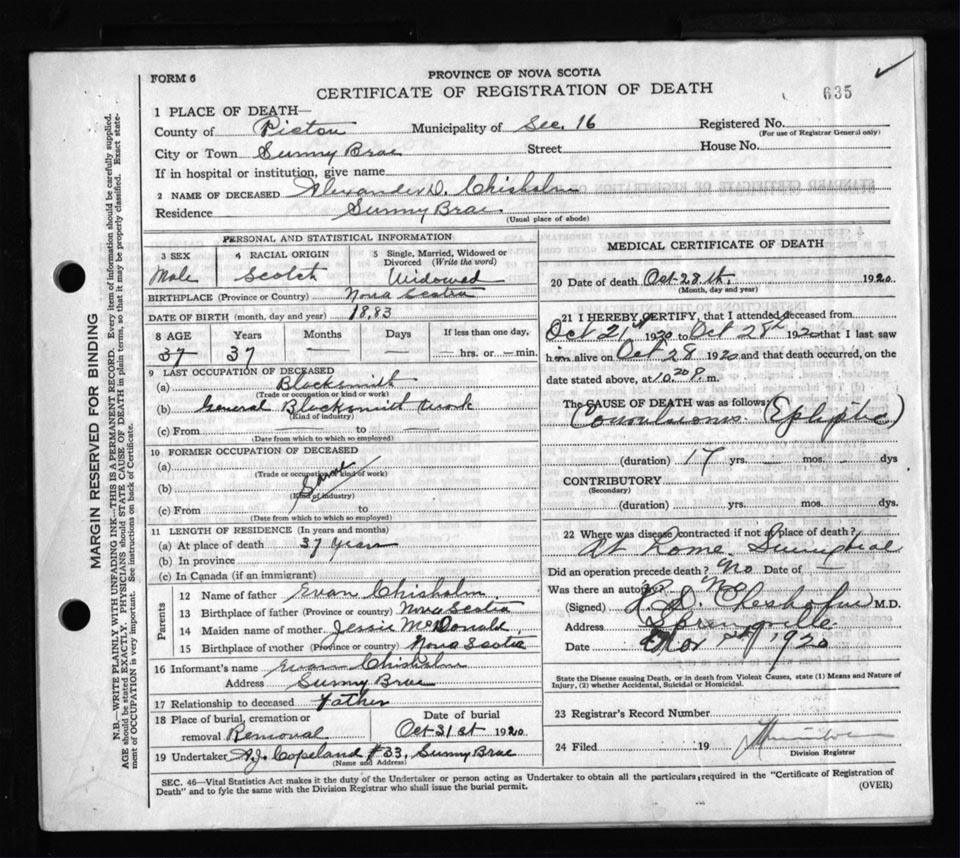 FORM 6
PROVINCE OF NOVA SCOTIA
CERTIFICATE OF REGISTRATION OF DEATH
635
1 PLACE OF DEATH—
County of Pictou Municipality of Sec. 16 Registered No.
(For use of Registrar General only)
City or Town Sunny Brae Street House No.
If in hospital or institution, give name
2 NAME OF DECEASED Alexander D. Chisholm
Residence Sunny Brae.
(Usual place of abode)
MARGIN RESERVED FOR BINDING
N.B.—WRITE PLAINLY WITH UNFADING INK—THIS IS A PERMANENT RECORD. Every item of information should be carefully supplied.
AGE should be stated EXACTLY. PHYSICIANS should STATE CAUSE OF DEATH in plain terms, so that it may be properly classified. Exact state-
ment of OCCUPATION is very important. See instructions on back of Certificate.
PERSONAL AND STATISTICAL INFORMATION
3 SEX 4 RACIAL ORIGIN 5 Single, Married, Widowed or
Divorced (Write the word)
Male Scotch Widowed
BIRTHPLACE (Province or Country) Nova Scotia
DATE OF BIRTH (month, day and year) 1883
8 AGE Years Months Days If less than one day,
37 37 — — — hrs. or — min.
9 LAST OCCUPATION OF DECEASED
(a) Blacksmith
(Trade or occupation or kind of work)
(b) General Blacksmith work
(Kind of industry)
(c) From — to —
(Date from which to which so employed)
10 FORMER OCCUPATION OF DECEASED
(a)
(Trade or occupation or kind of work)
(b) Same
(Kind of industry)
(c) From to
(Date from which to which so employed)
11 LENGTH OF RESIDENCE (In years and months)
(a) At place of death 37 years
(b) In province
(c) In Canada (if an immigrant)
Parents
12 Name of father Evan Chisholm
13 Birthplace of father (Province or country) Nova Scotia
14 Maiden name of mother Jessie McDonald
15 Birthplace of mother (Province or country) Nova Scotia
16 Informant's name Evan Chisholm
Address Sunny Brae
17 Relationship to deceased Father
18 Place of burial, cremation or Date of burial
removal Removal Oct 31st 1920
19 Undertaker A.J. Copeland #33, Sunny Brae
(Name and Address)
MEDICAL CERTIFICATE OF DEATH
20 Date of death Oct-28th, 1920.
(Month, day and year)
21 I HEREBY CERTIFY, that I attended deceased from
Oct 21st 1920 to Oct 28th 1920 that I last saw
him alive on Oct 28 1920 and that death occurred, on the
date stated above, at 10.20 P. m.
The CAUSE OF DEATH was as follows:
Convulsions (Epliptic)
(duration) 17 yrs. — mos. — dys
CONTRIBUTORY
(Secondary)
(duration) yrs. mos. dys.
22 Where was disease contracted if not at place of death?
At home.
Did an operation precede death? No Date of —
Was there an autopsy? No
(Signed) M.D.
Address Springville
Date Nov 1920
State the Disease causing Death, or in death from Violent Causes, state (1) Means and Nature of
Injury, (2) whether Accidental, Suicidal or Homicidal.
23 Registrar's Record Number
24 Filed 19
Division Registrar
SEC. 46—Vital Statistics Act makes it the duty of the Undertaker or person acting as Undertaker to obtain all the particulars required in the "Certificate of Registration of
Death" and to fyle the same with the Division Registrar who shall issue the burial permit.
(OVER)